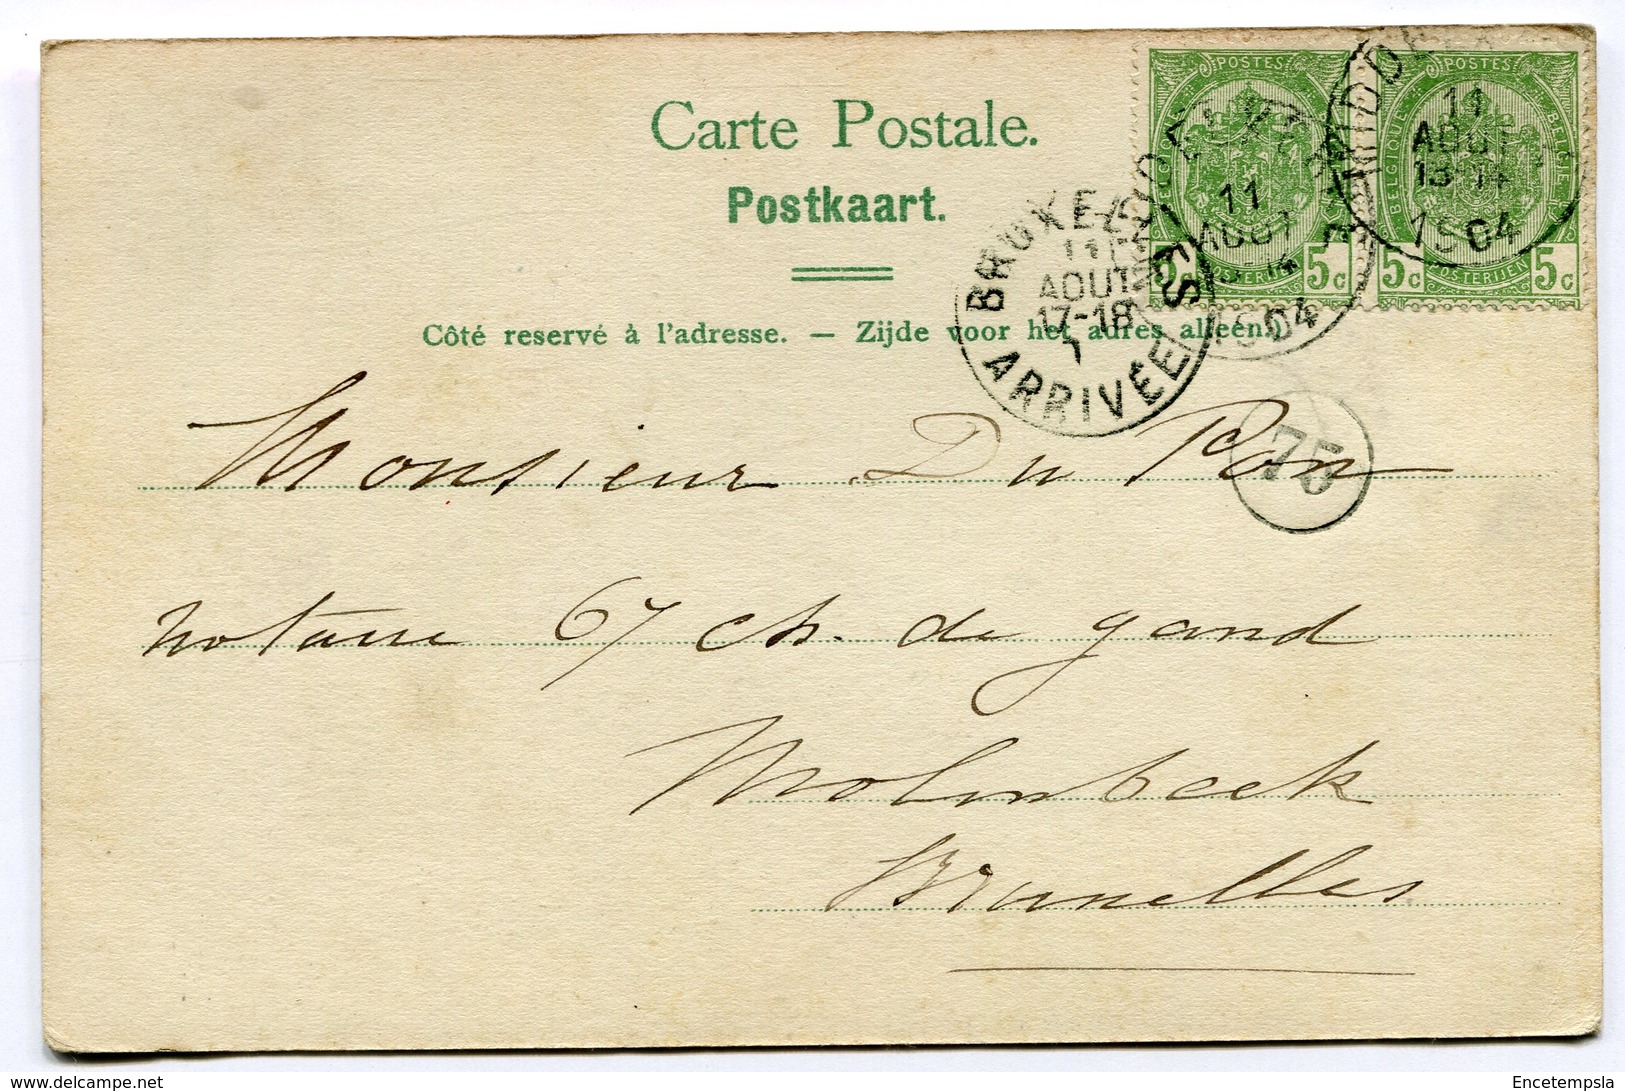 Carte Postale.
Postkaart.
Côté reservé à l'adresse. — Zijde voor het adres alleen.)
POSTES POSTES
BELGIQUE BELGIE
POSTERIJEN
5c 5c 5c 5c
11
AOUT
13-14
1904
11
AOUT
1904
BRUXELLES
11
AOUT
17-18
ARRIVÉE
75
Monsieur Du Pon
notaire 67 ch. de gand
Molenbeek
Bruxelles
delcampe.net
Encetempsla